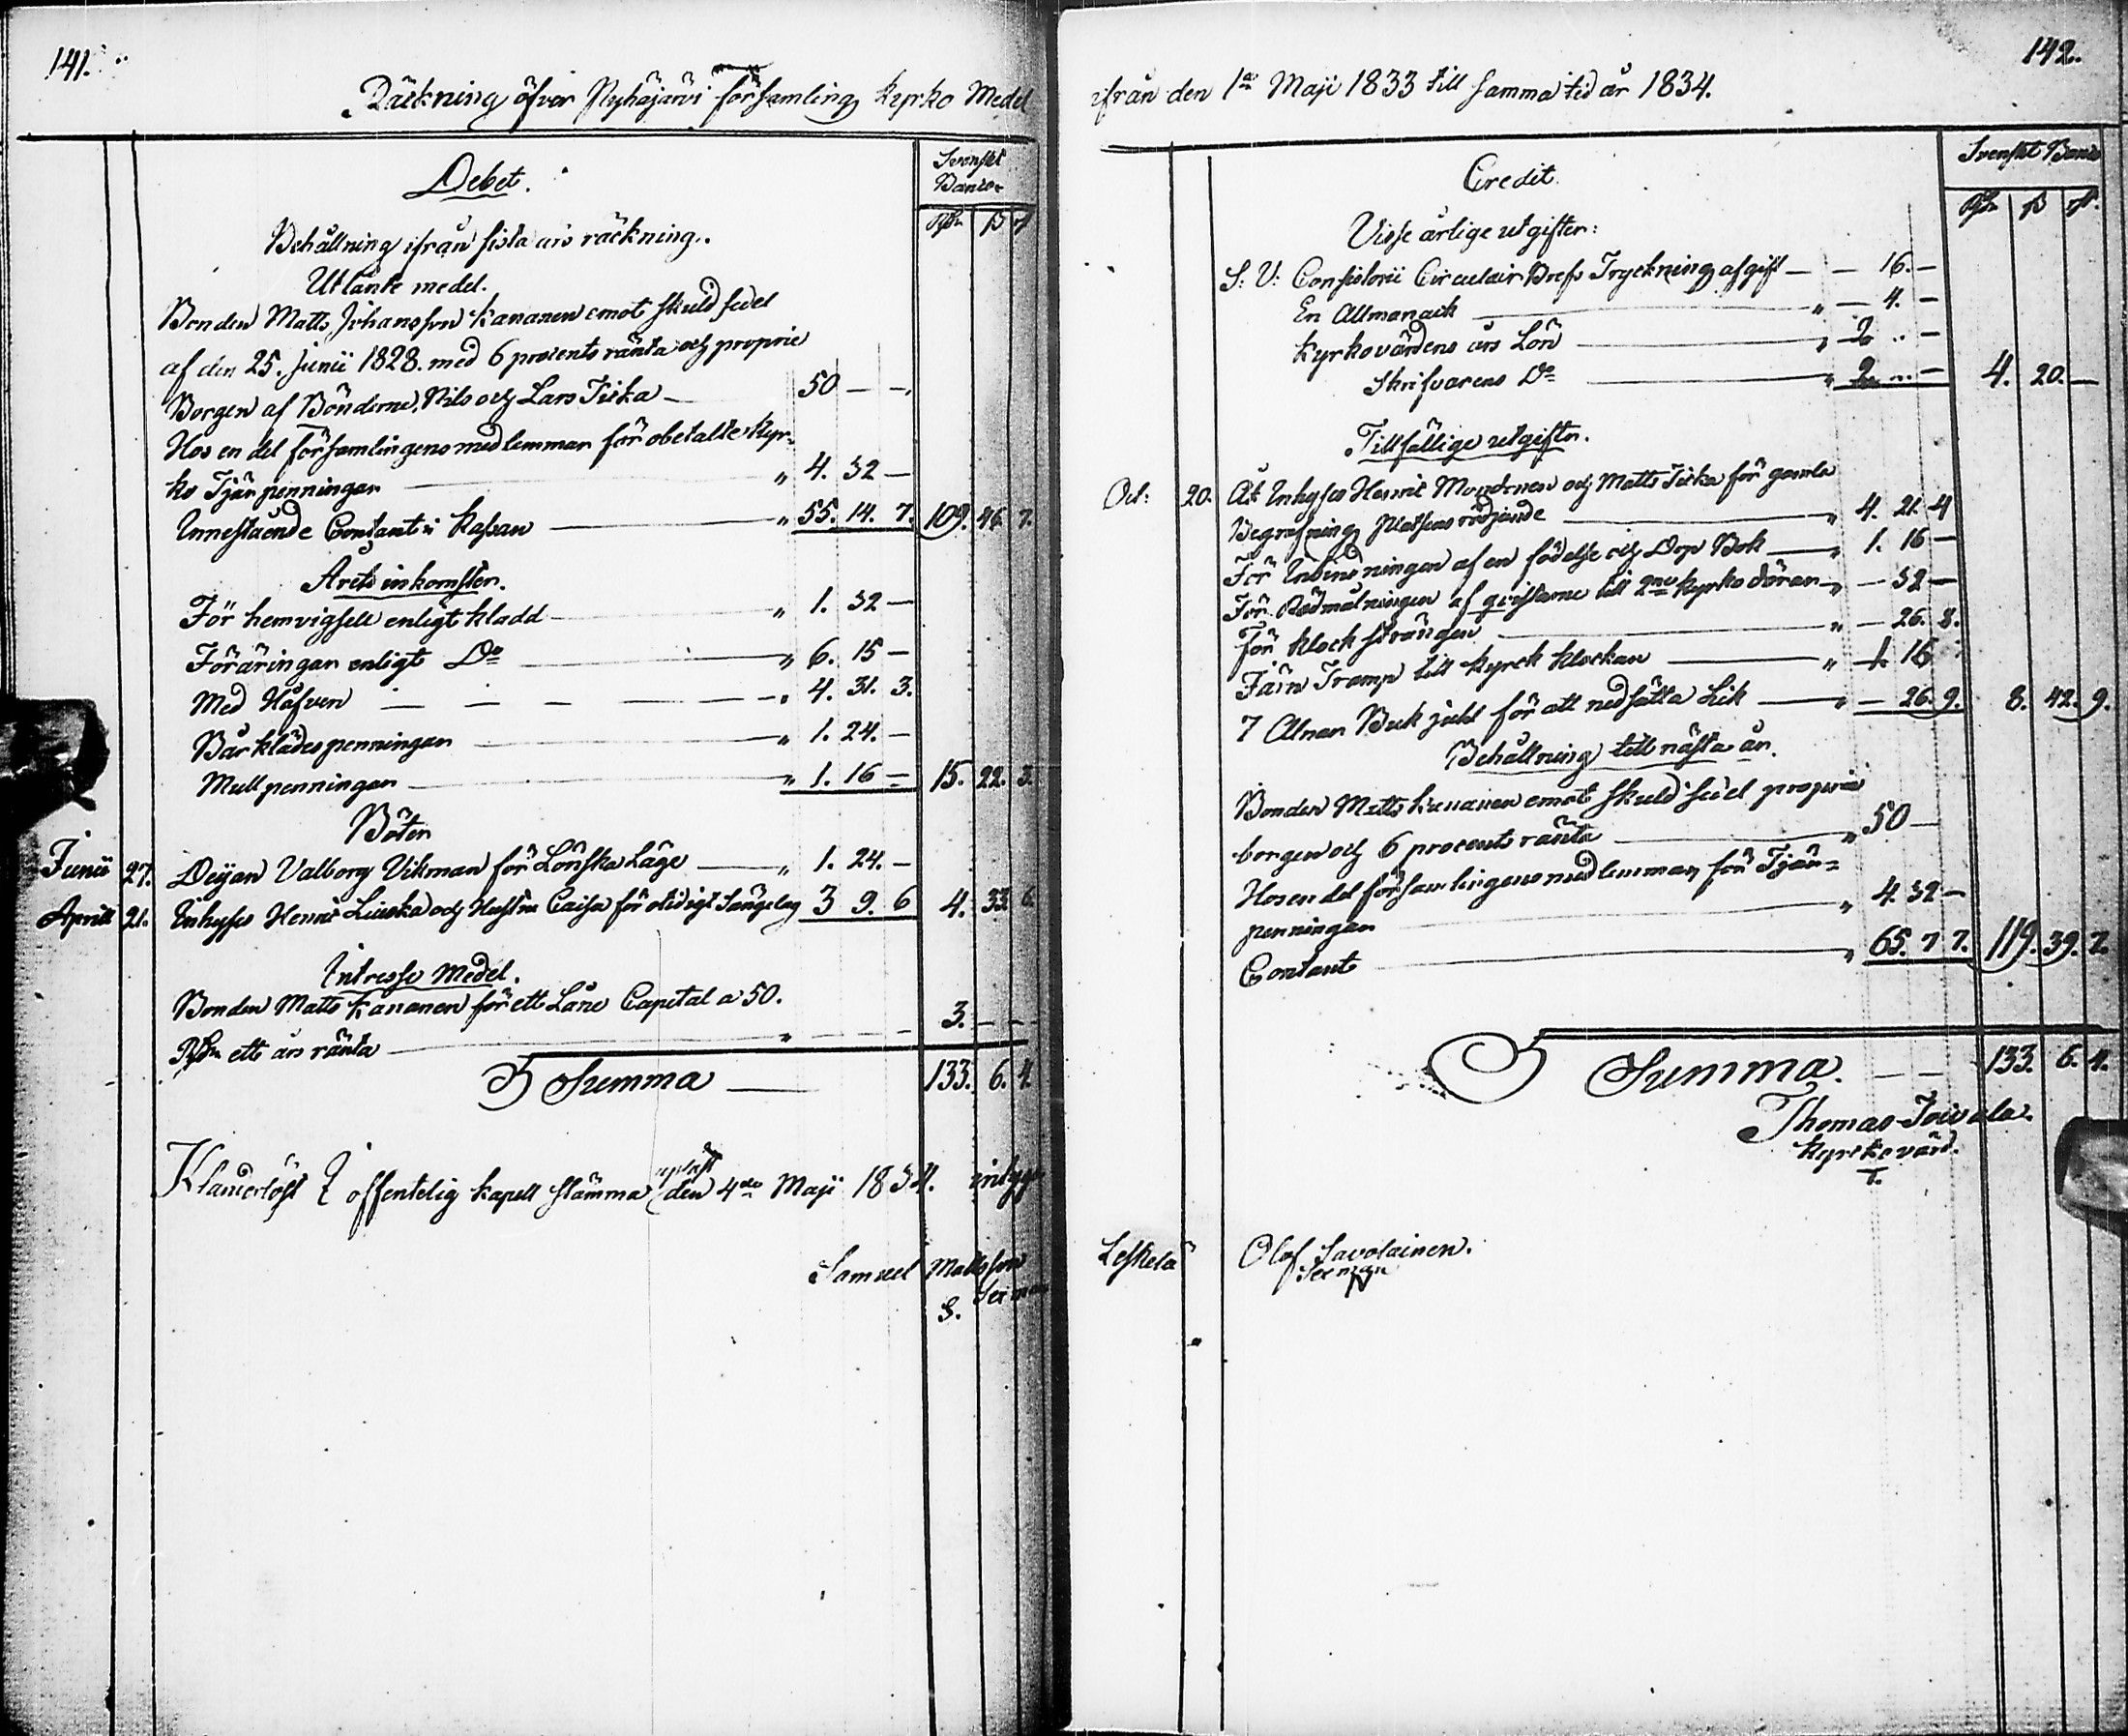 141.
Räckning öfver Pyhäjärvi församling kyrko Medel
Debet.
Svenskt
Banco.
Rdr ß rst
Behållning ifrån sista års räckning.
Utlänte medel.
Bonden Matts Johansson Kananen emot skuld sedel
af den 25. Junii 1828. med 6 procents ränta och proprie
Borgen af Bönderne, Nils och Lars Tiska — 50 — —.
Hos en del församlingens medlemmar för obetalte kyr-
ko Tjär penningar — " 4. 32 —
Innestående Contant i Kassan — " 55. 14. 7. 109. 46. 7.
Årets inkomster.
För hemvigsell enligt kladd — " 1. 32 —
Föräringar enligt Do — " 6. 15 —
Med Håfven — — — — — " 4. 31. 3.
Bårklädespenningar — " 1. 24. —
Mullpenningar — " 1. 16 — 15. 22. 3.
Böter
Junii 27. Deijan Valborg Vikman för Lönska Läge — " 1. 24. —
Aprill 21. Inhyses Henric Liuska och Hustru Caisa för otidigt Sängelag 3 9. 6 4. 33. 6.
Intresse Medel.
Bonden Matts Kananen för ett Låne Capital a 50.
Rdr ett års ränta — " — — — 3. — —
Summa — 133. 6. 4.
Klanderlöst i offentelig kapell stämma upläst den 4de Maji 1834. intyga
Samuel Mattsson
S. Sexman
142.
ifrån den 1a Maji 1833 till samma tid år 1834.
Credit.
Svenskt Banco
Rdr ß rst.
Visse årlige utgifter:
S: V: Consistorii Circulair Brefs Tryckning afgift — — 16. —
En Allmanack — " — 4. —
Kyrkovärdens års Lön — " 2 .. —
Skrifvarens Do — " 2 .. — 4. 20. —
Tillfällige utgifter.
Oct: 20. Åt Inhyses Henric och Matts Tiska för gamla
Begrafning Platsens rödjande — " 4. 21. 4
För Inbindningen af en födelse och Dop Bok — " 1. 16 —
För Rödmålningen af qvistarne till 2ne kyrko dörar — " — 32 —
För klock strängen — " — 26. 8.
Järn Tramp till kyrck klockan — " 1. 16
7 Alnar Buk juhl för att nedsätta Lik — " — 26. 9. 8. 42. 9.
Behållning till nästa år.
Bonden Matts Kananen emot skuld sedel proprie
borgen och 6 procents ränta — " 50 —
Hos en del församlingens medlemmar för Tjär-
penningar — " 4. 32 —
Contant — " 65. 7 7. 119. 39. 7.
Summa. — — 133. 6. 4.
Thomas Toivola.
kyrkovärd.
T.
Leskelä Olof Savolainen.
Sexman